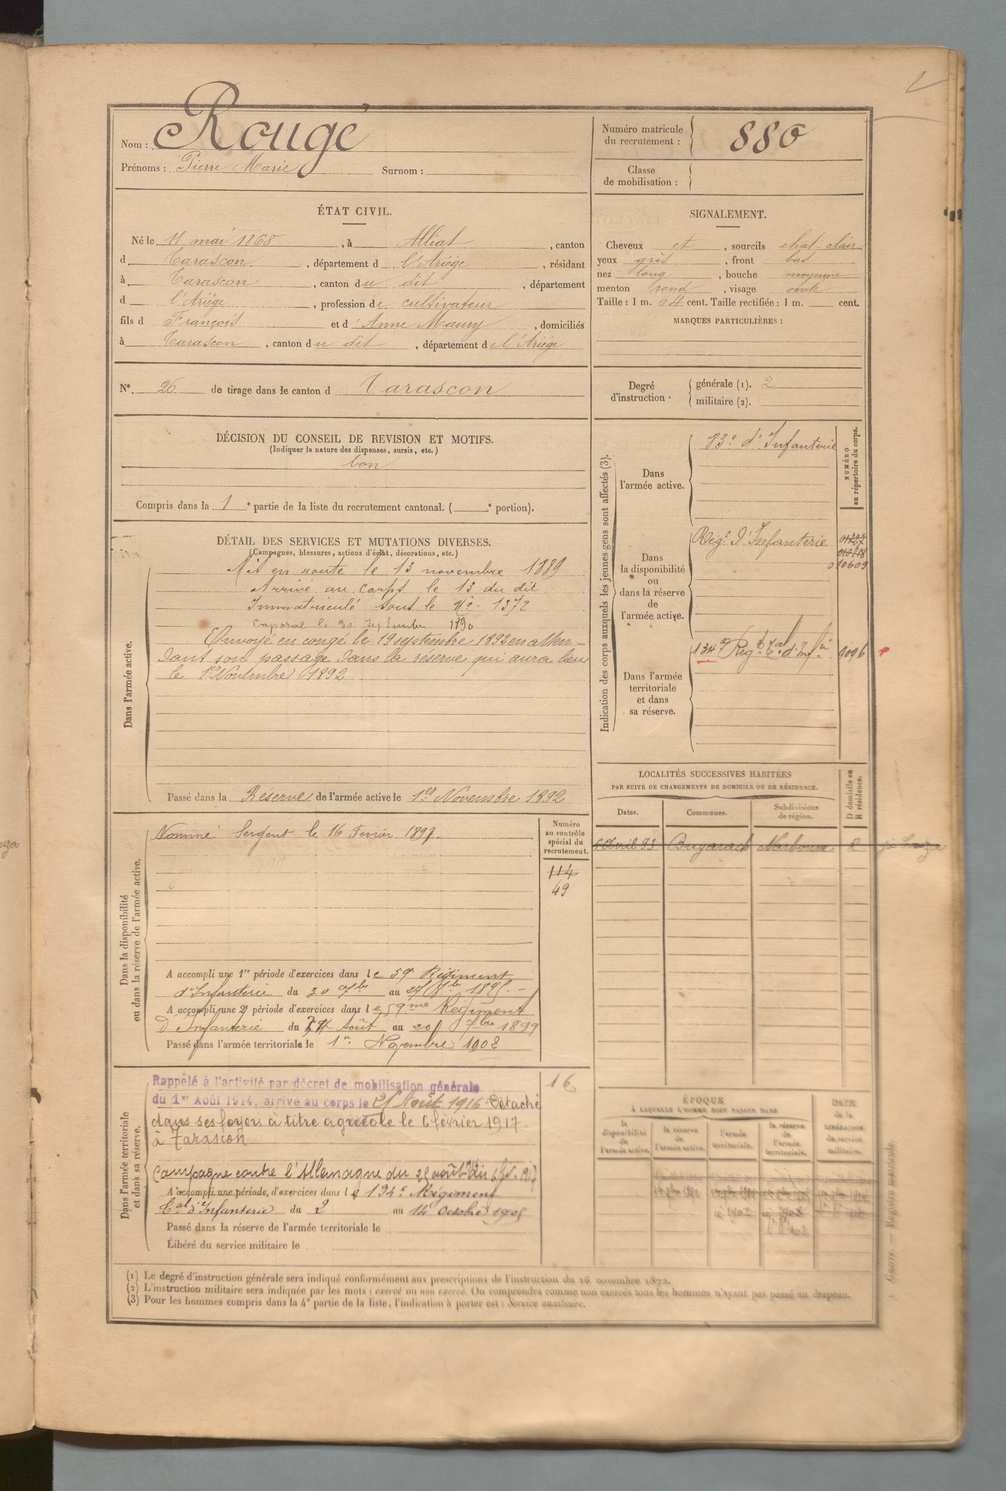 Nom : Rougé
Prénoms : Pierre Marie Surnom :
Numéro matricule du recrutement : 880
Classe de mobilisation :
ÉTAT CIVIL.
Né le 11 mai 1868, à Alliat, canton
d Tarascon, département d l'Ariège, résidant
à Tarascon, canton du dit, département
d l'Ariège, profession de cultivateur
fils d François et d Anne Maury, domiciliés
à Tarascon, canton du dit, département de l'Ariège
N° 26 de tirage dans le canton d Tarascon
SIGNALEMENT.
Cheveux et, sourcils chat. clair
yeux gris, front bas
nez long, bouche moyenne
menton rond, visage ovale
Taille : 1 m. 64 cent. Taille rectifiée : 1 m. cent.
MARQUES PARTICULIÈRES :
Degré d'instruction : générale (1). 2
militaire (2).
DÉCISION DU CONSEIL DE REVISION ET MOTIFS.
(Indiquer la nature des dispenses, sursis, etc.)
bon
Compris dans la 1e partie de la liste du recrutement cantonal. ( e portion).
DÉTAIL DES SERVICES ET MUTATIONS DIVERSES.
(Campagnes, blessures, actions d'éclat, décorations, etc.)
Dans l'armée active.
Mis en route le 13 novembre 1889
Arrivé au corps le 13 du dit
Immatriculé sous le N° 1372
Caporal le 30 septembre 1890
Envoyé en congé le 19 septembre 1892 en atten-
dant son passage dans la réserve qui aura lieu
le 1er Novembre 1892
Passé dans la Réserve de l'armée active le 1er Novembre 1892
Indication des corps auxquels les jeunes gens sont affectés (3).
NUMÉRO au répertoire du corps.
Dans l'armée active.
83e d'Infanterie
Dans la disponibilité ou dans la réserve de l'armée active.
Régt d'Infanterie
010609
Dans l'armée territoriale et dans sa réserve.
134e Régt Tal d'Infie
9096
LOCALITÉS SUCCESSIVES HABITÉES
PAR SUITE DE CHANGEMENTS DE DOMICILE OU DE RÉSIDENCE.
Dates. Communes. Subdivisions de région. D domicile ou R résidence.
Avril 93 Bugarach Narbonne
Dans la disponibilité ou dans la réserve de l'armée active.
Numéro au contrôle spécial du recrutement.
Nommé Sergent le 16 Fevrier 1897
114
49
A accompli une 1re période d'exercices dans le 59e Régiment
d'Infanterie du 30 7bre au 27 8bre 1895
A accompli une 2e période d'exercices dans le 59me Régiment
d'Infanterie du 24 Août au 20 7bre 1899
Passé dans l'armée territoriale le 1er Novembre 1902
Dans l'armée territoriale et dans sa réserve.
16
Rappelé à l'activité par décret de mobilisation générale
du 1er Août 1914, arrivé au corps le 21 Août 1916 Détaché
dans ses foyers à titre agricole le 6 février 1917
à Tarascon
Campagne contre l'Allemagne du 21 août 1916 au 6 fév. 1917
A accompli une période d'exercices dans le 134e Régiment
Tal d'Infanterie du 2 au 14 Octobre 1905
Passé dans la réserve de l'armée territoriale le
Libéré du service militaire le
ÉPOQUE
À LAQUELLE L'HOMME DOIT PASSER DANS
la disponibilité de l'armée active. la réserve de l'armée active. l'armée territoriale. la réserve de l'armée territoriale.
DATE de la LIBÉRATION du service militaire.
(1) Le degré d'instruction générale sera indiqué conformément aux prescriptions de l'instruction du 26 novembre 1872.
(2) L'instruction militaire sera indiquée par les mots : exercé ou non exercé. On comprendra comme non exercés tous les hommes n'ayant pas passé au drapeau.
(3) Pour les hommes compris dans la 4e partie de la liste, l'indication à porter est : Service auxiliaire.
Registre matricule.